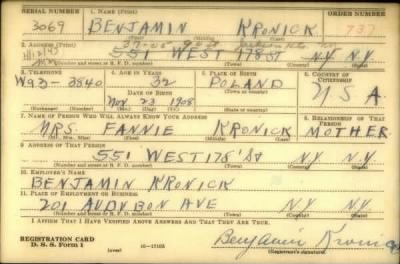 SERIAL NUMBER 1. NAME (Print) ORDER NUMBER
3069 BENJAMIN KRONICK 737
(First) (Middle) (Last)
2. ADDRESS (Print)
551 WEST 178 ST N.Y. N.Y.
(Number and street or R. F. D. number) (Town) (County) (State)
3. TELEPHONE 4. AGE IN YEARS 5. PLACE OF BIRTH 6. COUNTRY OF CITIZENSHIP
WA3-3840 32 POLAND U S A.
DATE OF BIRTH (Town or county)
Nov 23 1908
(Exchange) (Number) (Mo.) (Day) (Yr.) (State or country)
7. NAME OF PERSON WHO WILL ALWAYS KNOW YOUR ADDRESS 8. RELATIONSHIP OF THAT PERSON
MRS. FANNIE KRONICK MOTHER
(Mr., Mrs., Miss) (First) (Middle) (Last)
9. ADDRESS OF THAT PERSON
551 WEST 178' St N.Y. N.Y.
(Number and street or R. F. D. number) (Town) (County) (State)
10. EMPLOYER'S NAME
BENJAMIN KRONICK
11. PLACE OF EMPLOYMENT OR BUSINESS
201 AUDUBON AVE N.Y. N.Y.
(Number and street or R. F. D. number) (Town) (County) (State)
I AFFIRM THAT I HAVE VERIFIED ABOVE ANSWERS AND THAT THEY ARE TRUE.
REGISTRATION CARD
D. S. S. Form 1 (over) 16-17105
Benjamin Kronick
(Registrant's signature)